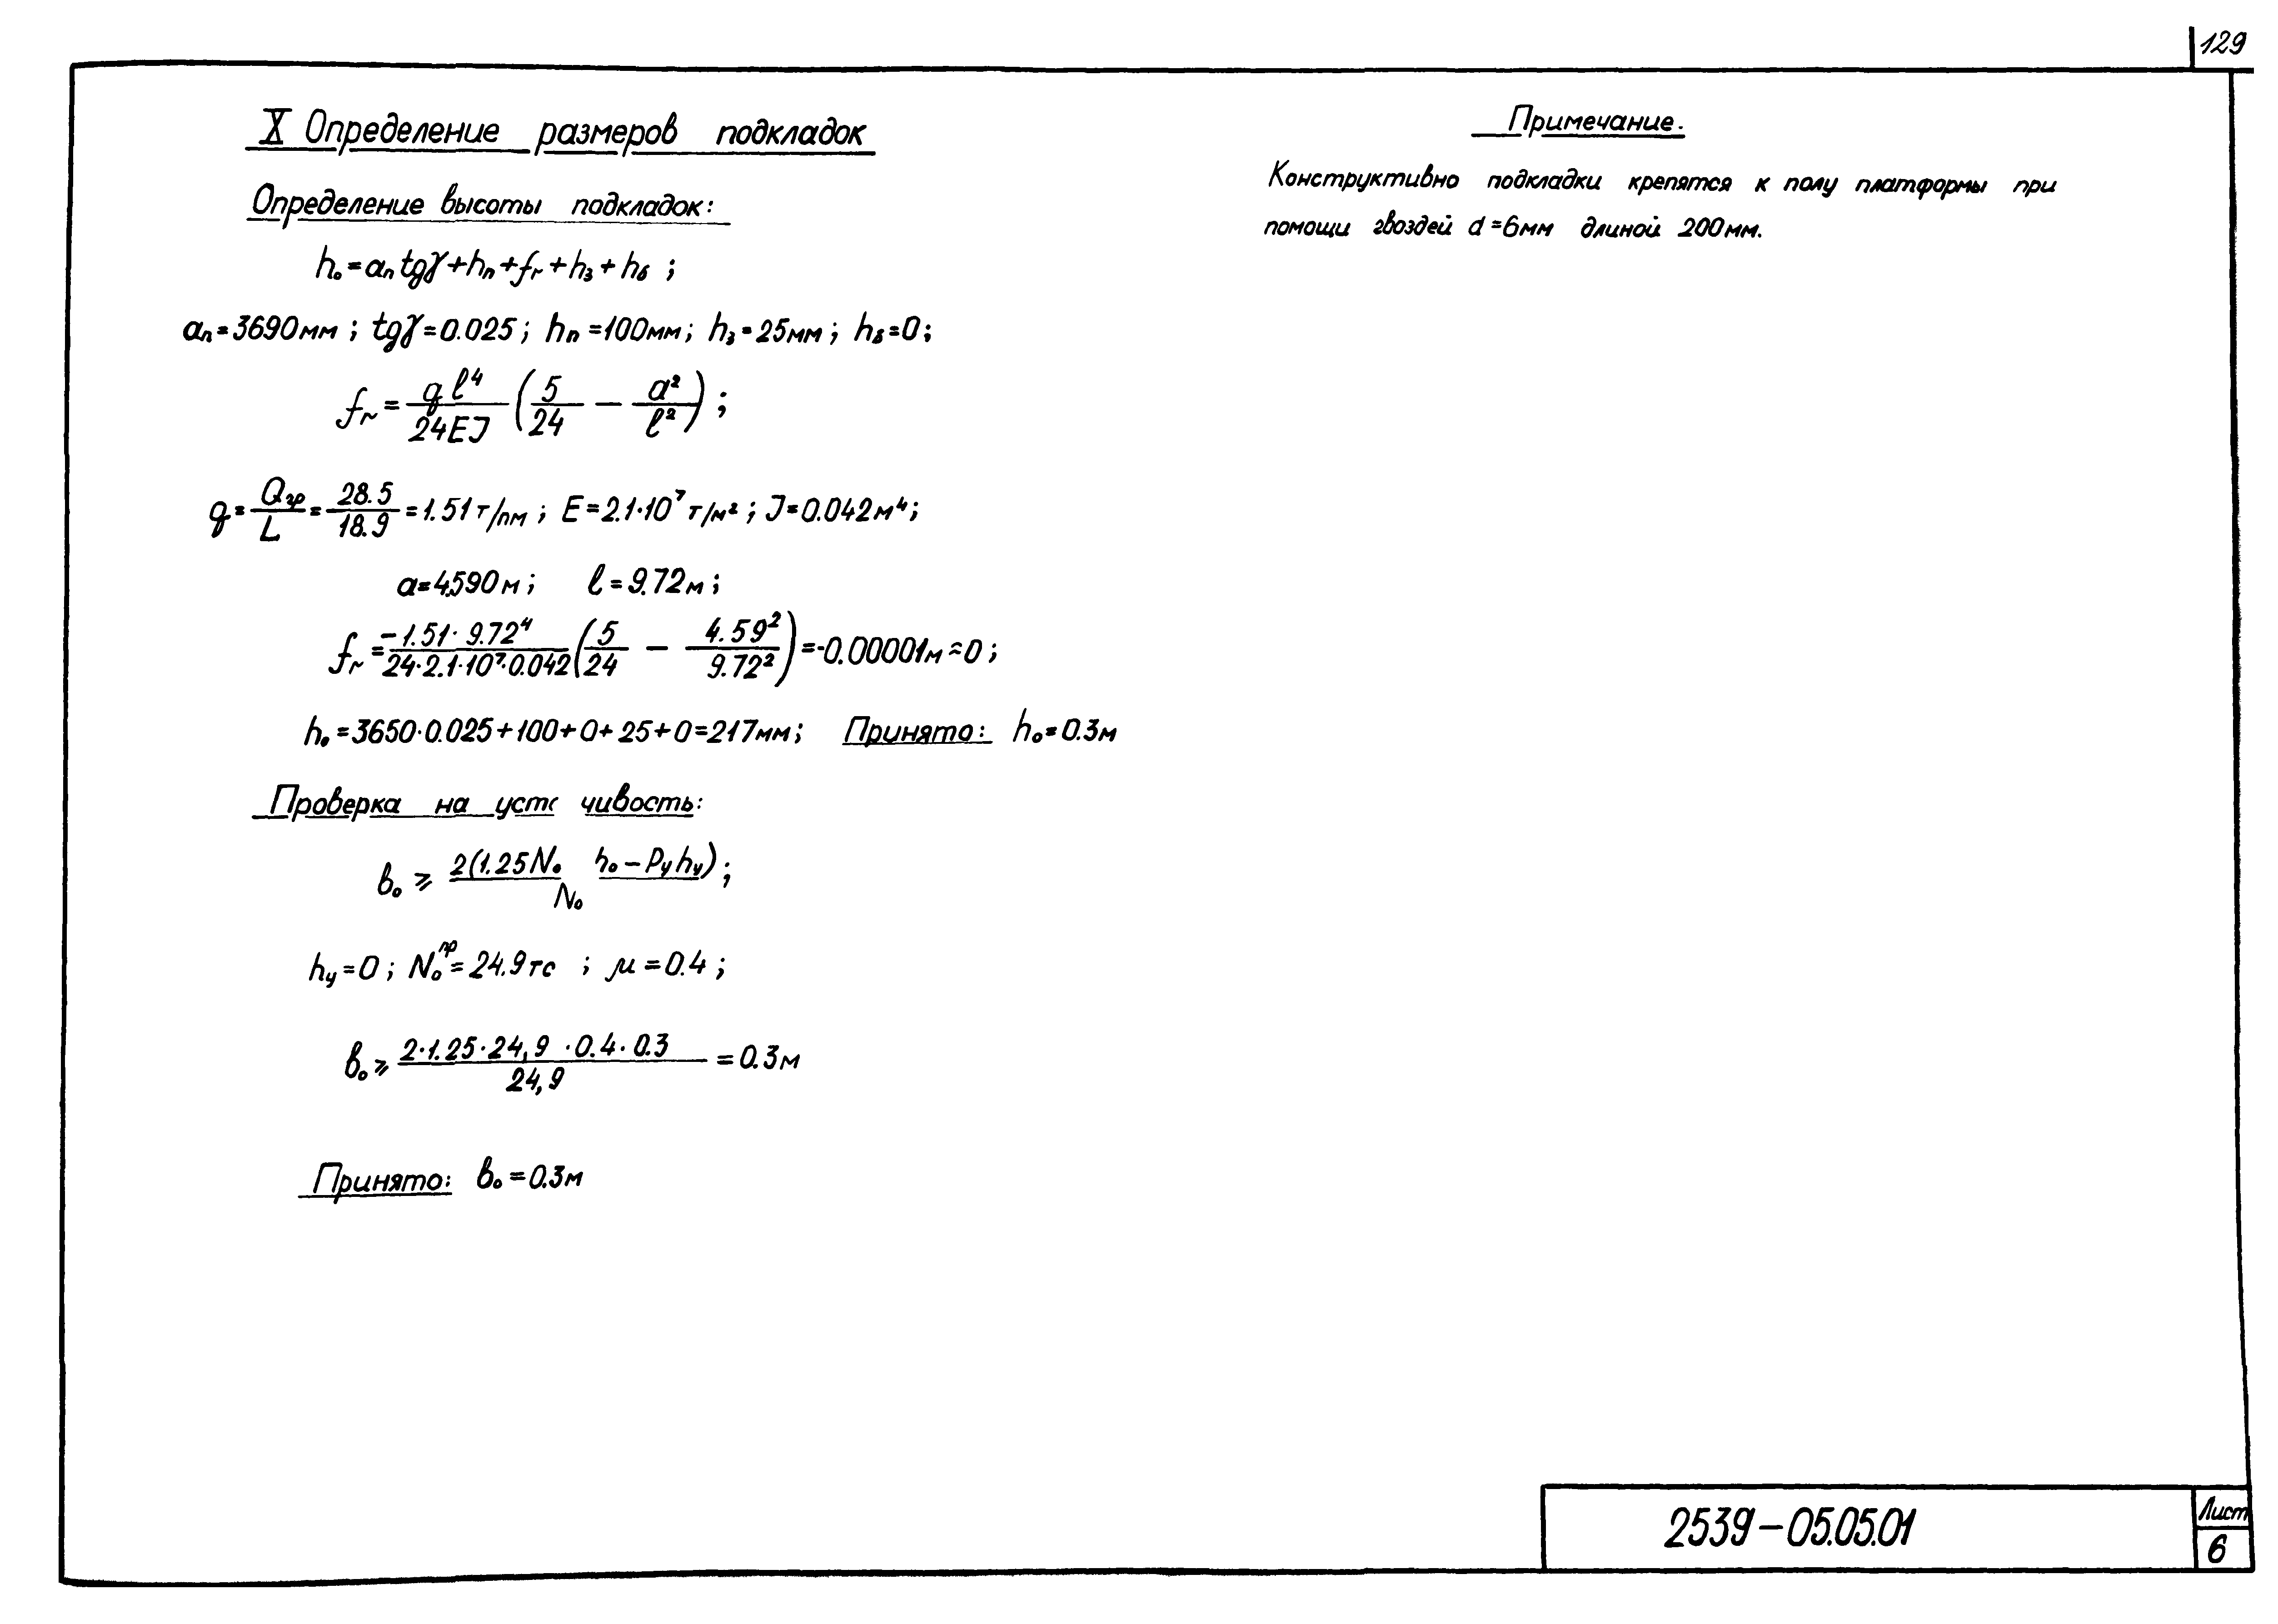 129
X Определение размеров подкладок
Определение высоты подкладок:
h₀ = aₙ tgγ + hₙ + fᵣ + h₃ + hδ ;
aₙ = 3690мм ; tgγ = 0.025 ; hₙ = 100мм ; h₃ = 25мм ; hδ = 0 ;
fᵣ = q ℓ⁴ / 24EJ (5/24 − a²/ℓ²) ;
q = Qгр / L = 28.5 / 18.9 = 1.51 т/пм ; E = 2.1·10⁷ т/м² ; J = 0.042 м⁴ ;
a = 4.590 м ; ℓ = 9.72 м ;
fᵣ = −1.51 · 9.72⁴ / 24·2.1·10⁷·0.042 (5/24 − 4.59²/9.72²) = -0.00001м ≈ 0 ;
h₀ = 3650·0.025+100+0+25+0=217мм ; Принято: h₀ = 0.3м
Проверка на уст чивость:
b₀ ⩾ 2(1.25N₀ h₀ − Pу hу) / N₀ ;
hу = 0 ; N₀ᵖʳ = 24.9 тс ; μ = 0.4 ;
b₀ ⩾ 2·1.25·24,9 ·0.4·0.3 / 24,9 = 0.3м
Принято: b₀ = 0.3м
Примечание.
Конструктивно подкладки крепятся к полу платформы при
помощи гвоздей d = 6мм длиной 200мм.
2539-05.05.01
Лист
6